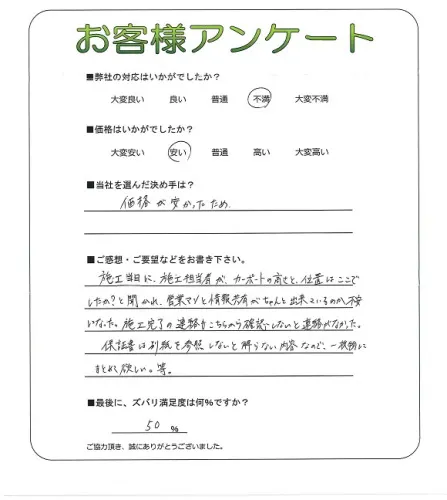 お客様アンケート
■弊社の対応はいかがでしたか？
大変良い 良い 普通 不満 大変不満
■価格はいかがでしたか？
大変安い 安い 普通 高い 大変高い
■当社を選んだ決め手は？
価格が安かったため.
■ご感想・ご要望などをお書き下さい。
施工当日に、施工担当者が、カーポートの高さと、位置はここで
したか？と聞かれ、営業マンと情報共有がちゃんと出来ているのか不安
になった。施工完了の連絡もこちらから確認しないと連絡がなかった。
保証書は別紙を参照しないと解らない内容なので、一枚物に
まとめて欲しい。等。
■最後に、ズバリ満足度は何%ですか？
50 %
ご協力頂き、誠にありがとうございました。